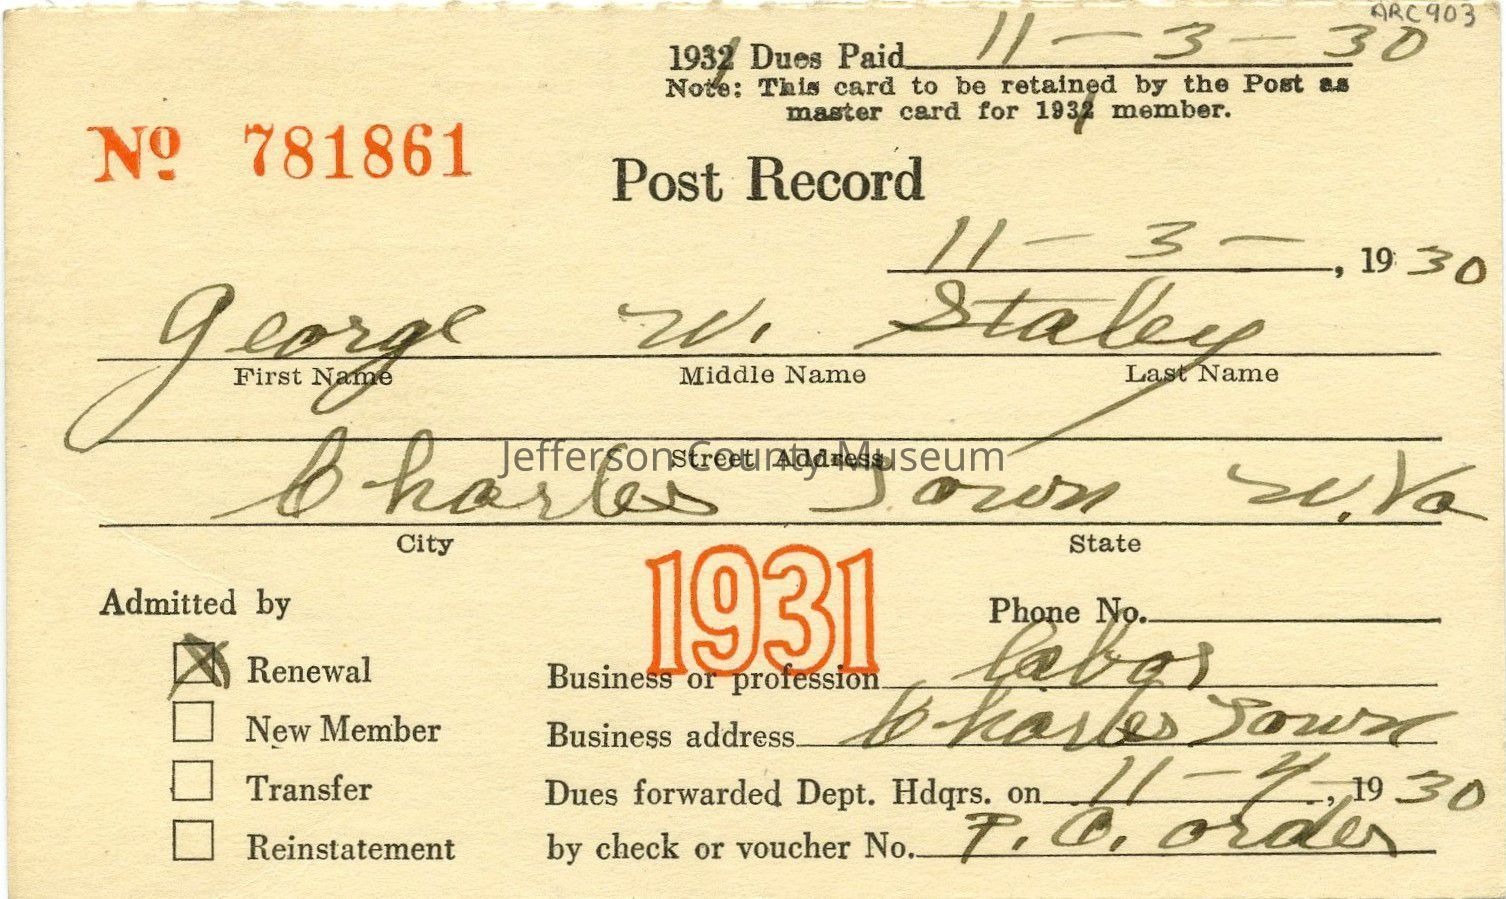 ARC903
1931 Dues Paid 11-3-30
Note: This card to be retained by the Post as
master card for 1931 member.
No 781861
Post Record
11-3-, 1930
George W. Staley
First Name Middle Name Last Name
Street Address
Jefferson County Museum
Charles Town W.Va
City State
1931
Admitted by
Phone No.
Renewal
Business or profession Labor
New Member
Business address Charles Town
Transfer
Dues forwarded Dept. Hdqrs. on 11-4-, 1930
Reinstatement
by check or voucher No. P.O. order